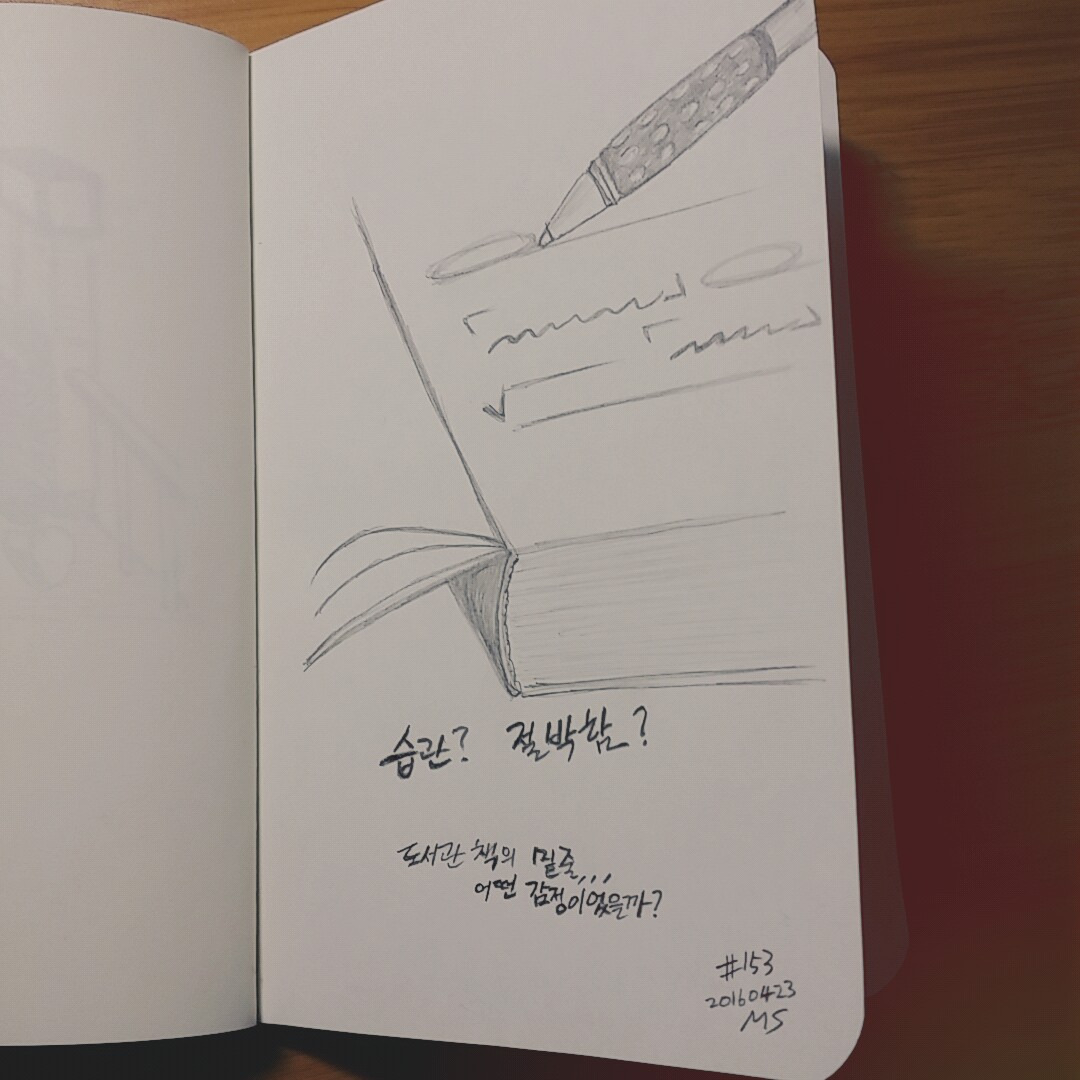 습관? 절박함?
도서관 책의 밑줄,,,
어떤 감정이었을까?
#153
20160423
MS